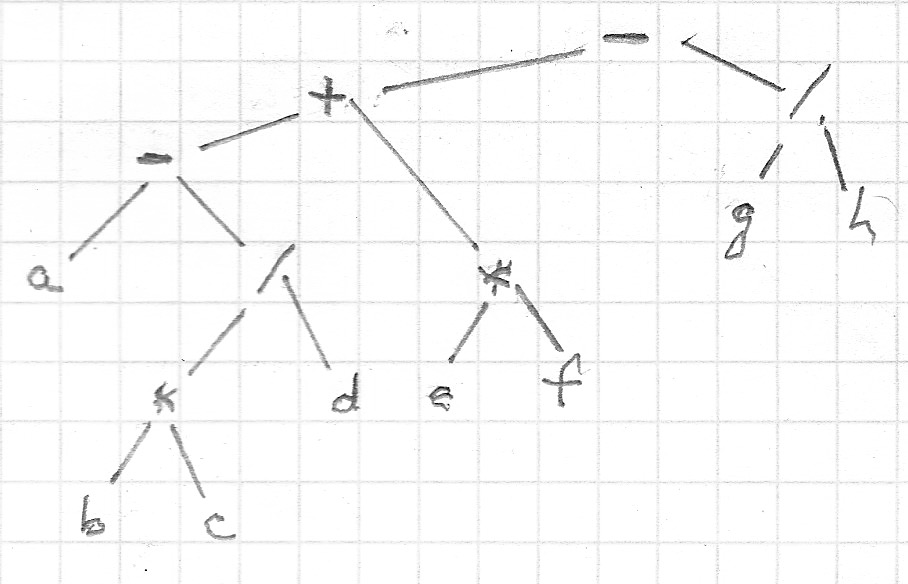 -
+ /
-
g h
a / *
* d e f
b c